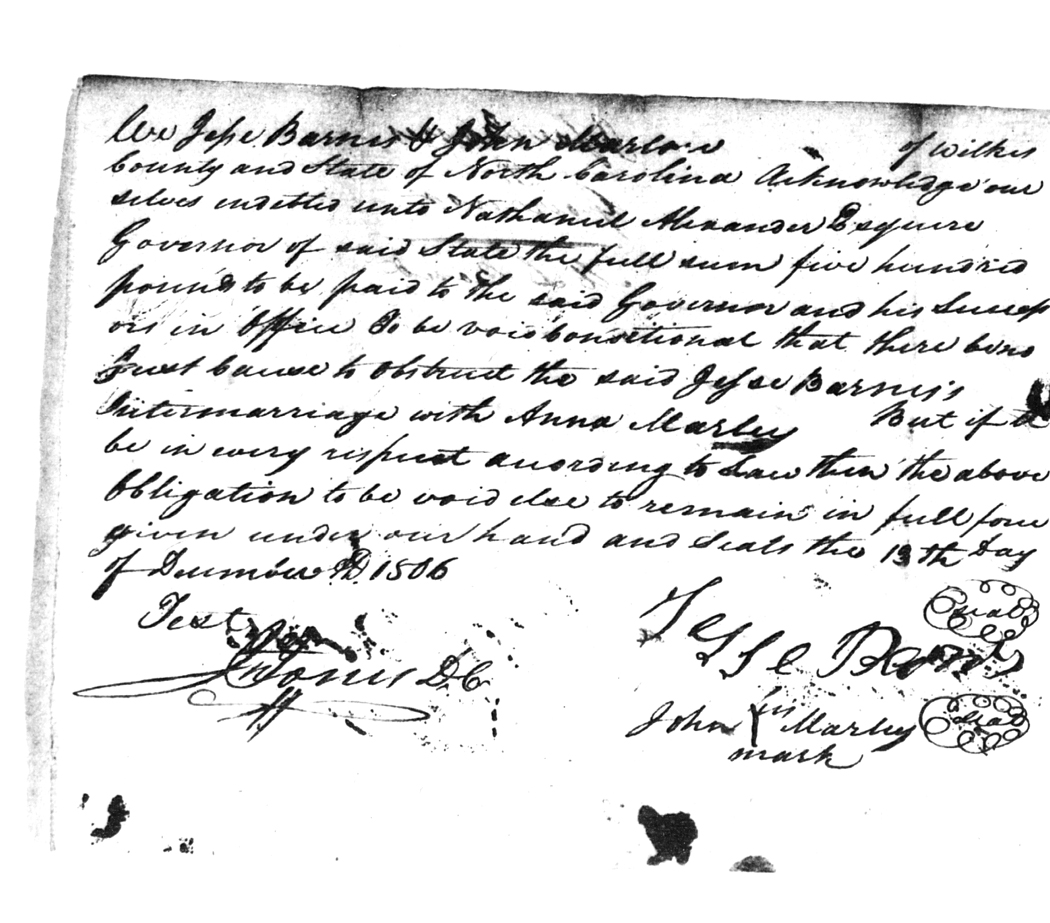 We Jesse Barnes & John Marlow of Wilkes
County and State of North Carolina Acknowledge our
selves indetted unto Nathaniel Alexander Esquire
Governor of said State the full sum five hundred
pounds to be paid to the said Governor and his Success
ors in Office To be void Conditional that there be no
Just Cause to Obstruct the said Jesse Barnes's
Intermarriage with Anna Marley But if it
be in every respect acording to Law then the above
Obligation to be void else to remain in full force
given under our hand and Seals the 19th Day
of December AD. 1806
Test
Jesse Barns Seal
Jones DC
his
John Marley Seal
mark